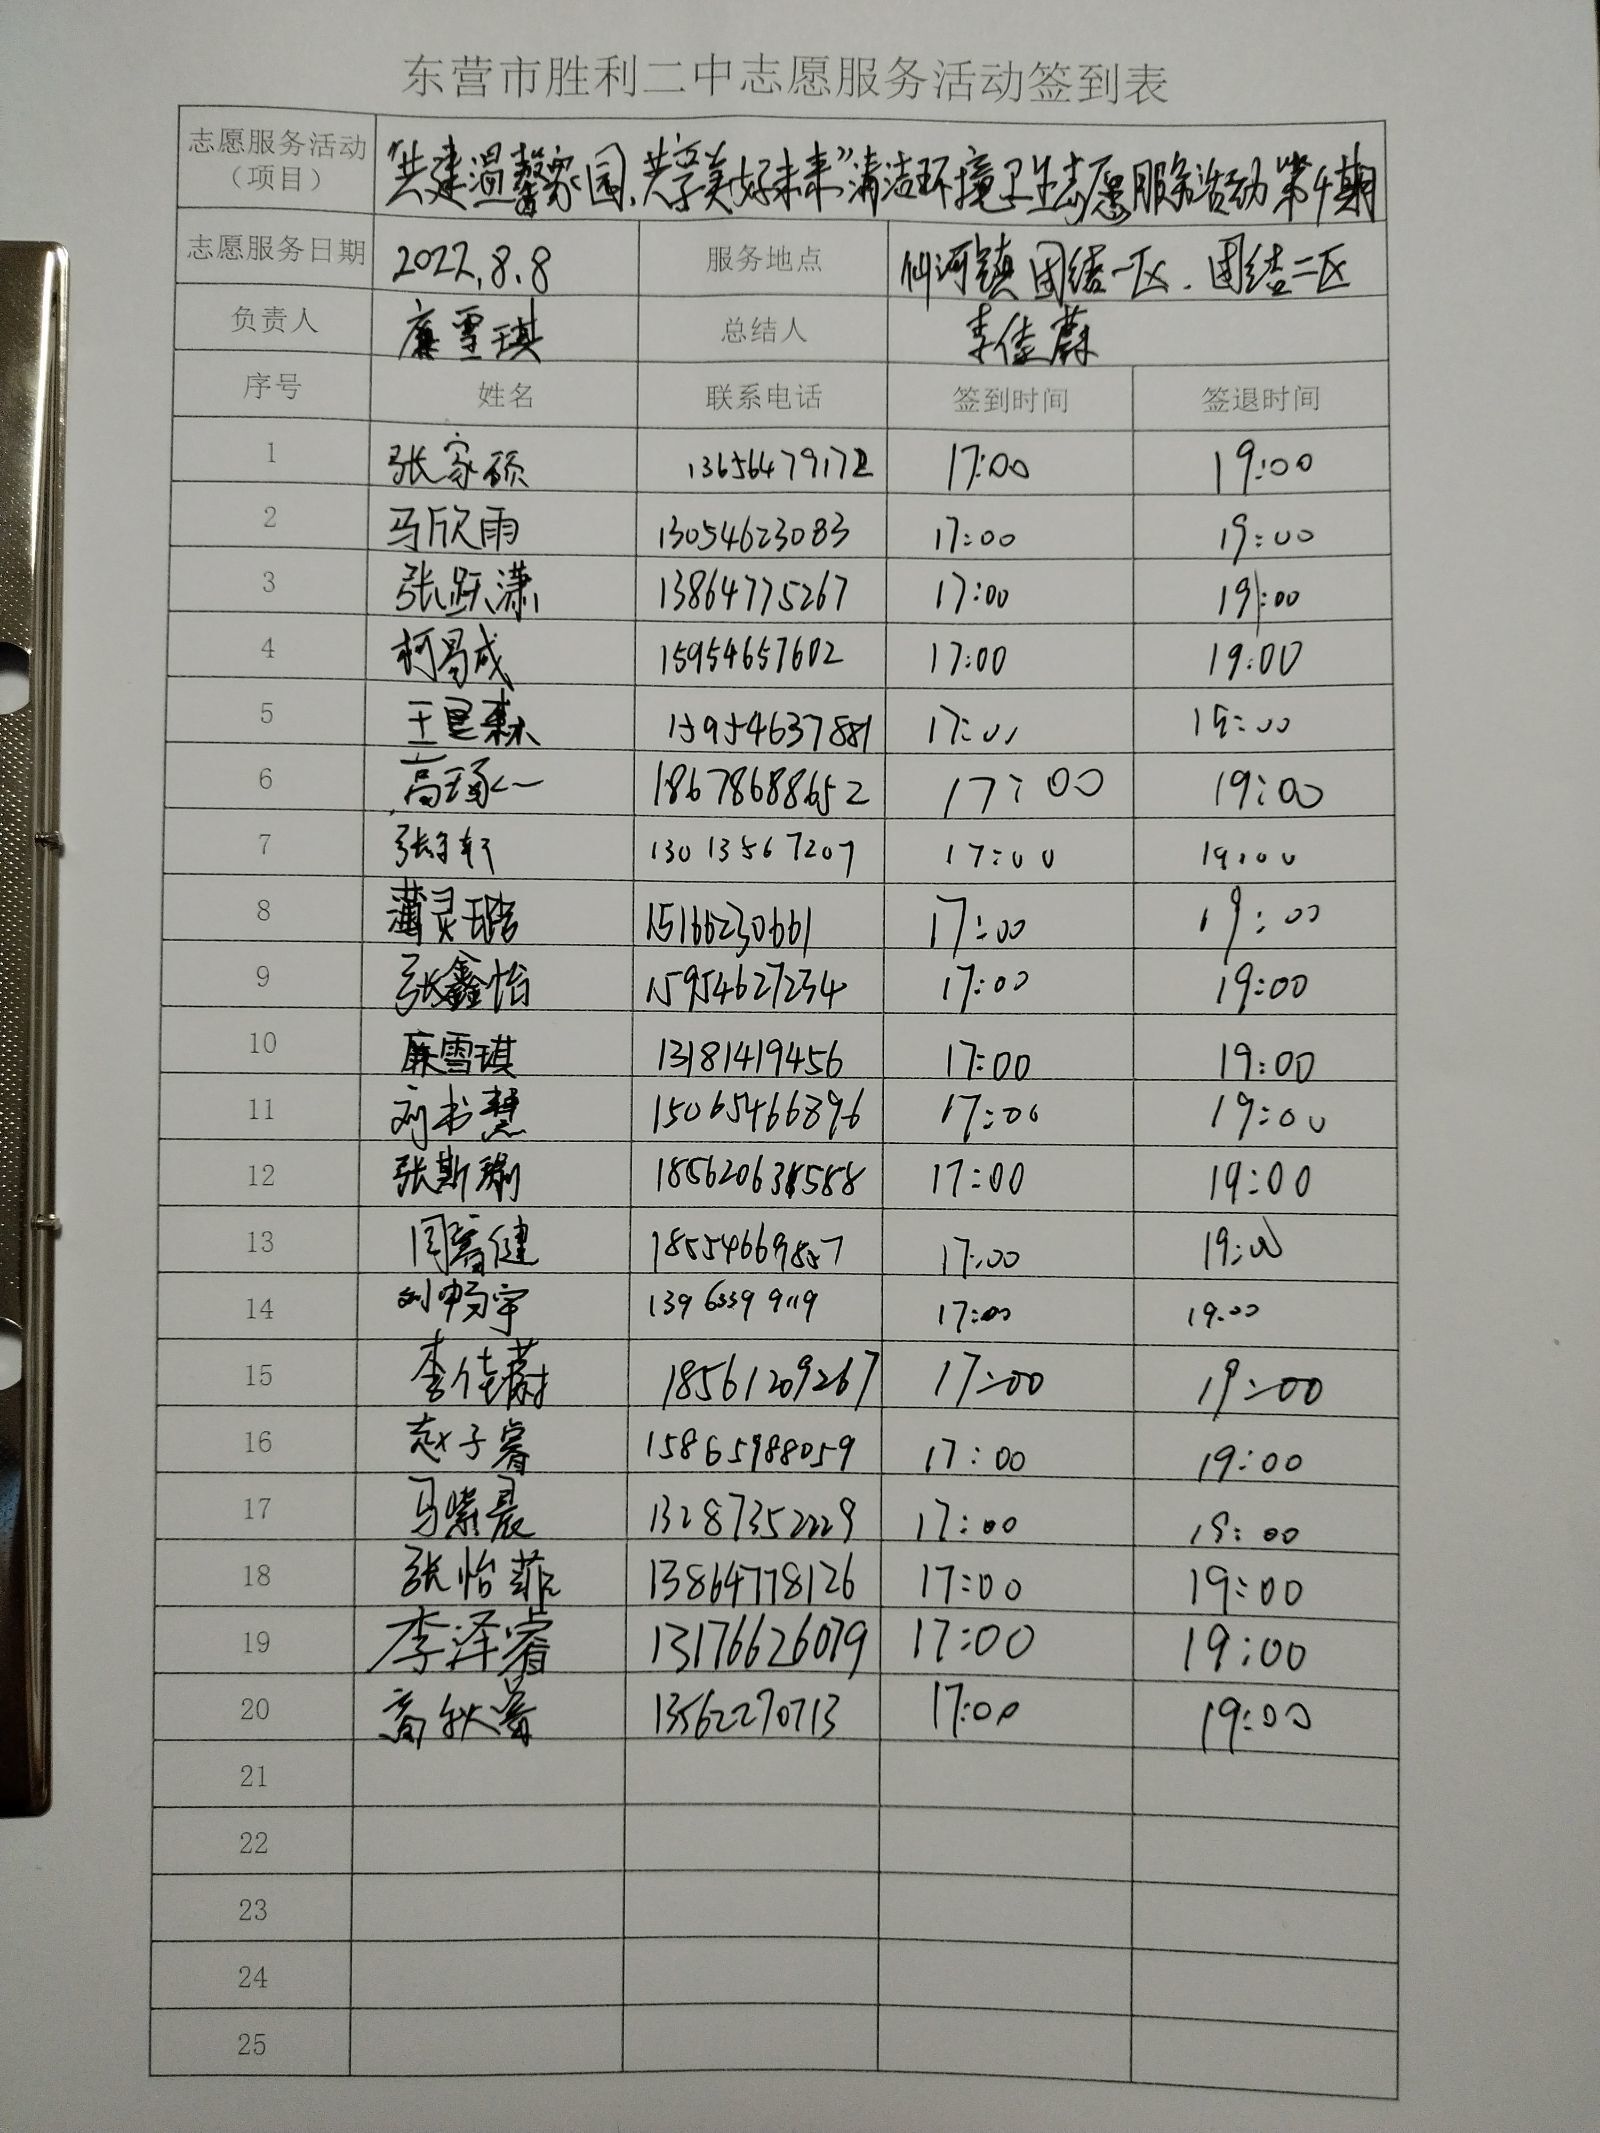 东营市胜利二中志愿服务活动签到表
志愿服务活动（项目） “共建温馨家园，共享美好未来”清洁环境卫生志愿服务活动第4期
志愿服务日期 2022.8.8 服务地点 仙河镇团结一区.团结二区
负责人 廉雪琪 总结人 李佳蔚
序号 姓名 联系电话 签到时间 签退时间
1 张家硕 13656479172 17:00 19:00
2 马欣雨 13054623083 17:00 19:00
3 张跃潇 13864775267 17:00 19:00
4 柯昌成 15954657602 17:00 19:00
5 王昱森 15954637881 17:00 19:00
6 高琢一 18678688652 17:00 19:00
7 张轩 13013567207 17:00 19:00
8 蒲灵璐 15166230661 17:00 19:00
9 张鑫怡 15954627234 17:00 19:00
10 廉雪琪 13181419456 17:00 19:00
11 刘书慧 15065466896 17:00 19:00
12 张斯 17:00 19:00
13 闫睿健 18554669857 17:00 19:00
14 刘畅宇 17:00 19:00
15 李佳蔚 18561209267 17:00 19:00
16 赵子睿 15865988059 17:00 19:00
17 马紫晨 13287352229 17:00 19:00
18 张怡菲 13864778126 17:00 19:00
19 李泽睿 13176626079 17:00 19:00
20 高秋 13562270713 17:00 19:00
21
22
23
24
25